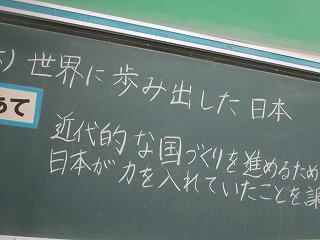 ) 世界に歩み出した日本
めあて
近代的な国づくりを進めるため
日本が力を入れていたことを調